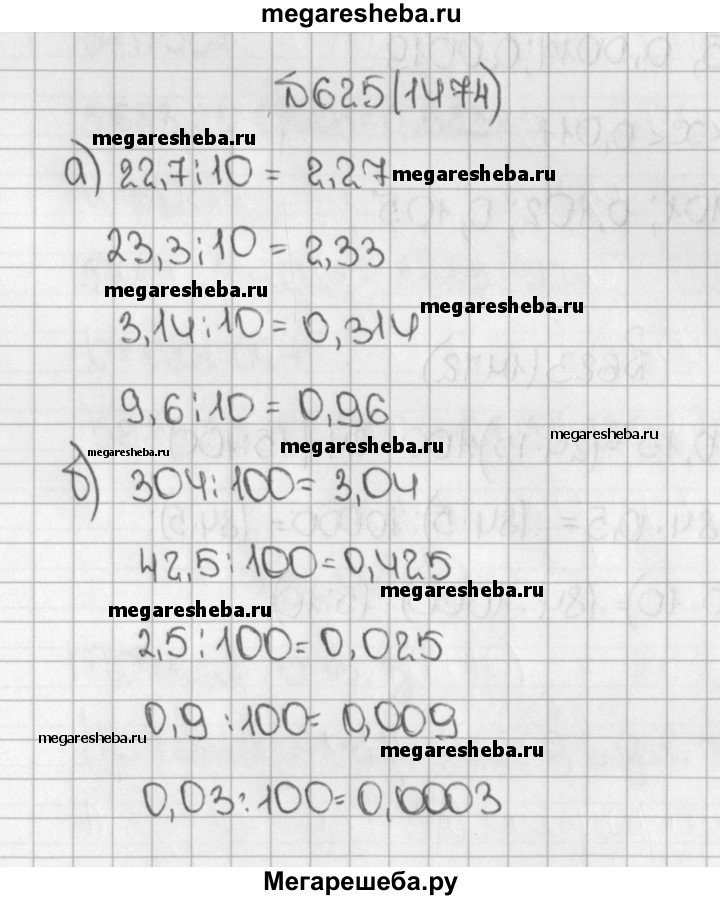 megaresheba.ru
№625(1474)
megaresheba.ru
а) 22,7:10 = 2,27 megaresheba.ru
23,3:10 = 2,33
megaresheba.ru
megaresheba.ru
3,14:10 = 0,314
9,6:10 = 0,96
megaresheba.ru
megaresheba.ru megaresheba.ru
б) 304:100 = 3,04
42,5:100 = 0,425
megaresheba.ru
megaresheba.ru
2,5:100 = 0,025
0,9:100 = 0,009
megaresheba.ru
megaresheba.ru
0,03:100 = 0,0003
Мегарешеба.ру